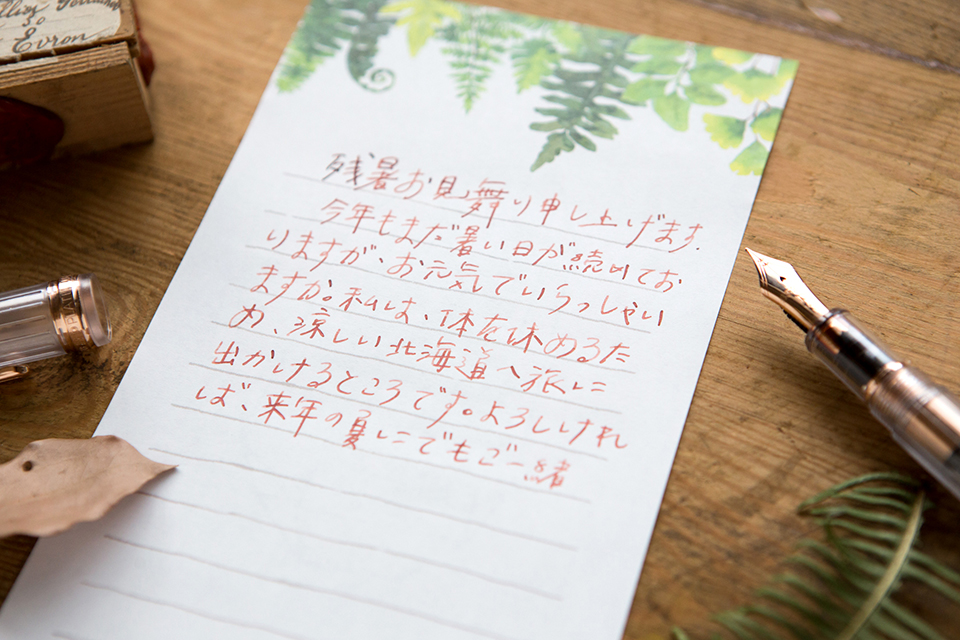 Evron
残暑お見舞り申し上げます.
今年もまだ暑い日が続めてお
りますが、お元気でいらっしゃい
ますか。私は、体を休めるた
め、涼しい北海道へ旅に
出かけるところです。よろしけれ
ば、来年の夏にでもご一緒